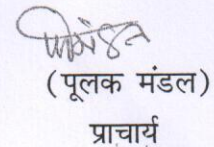 (पूलक मंडल)
प्राचार्य